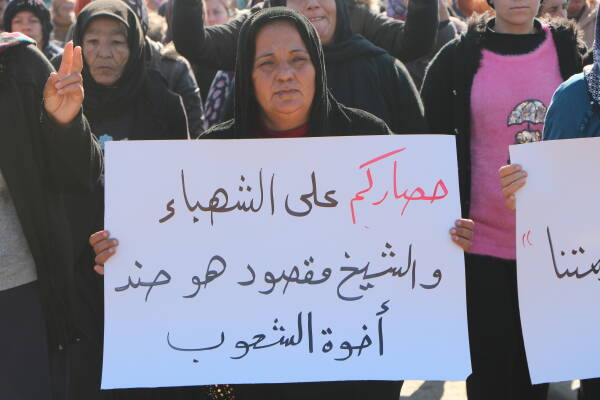 حصاركم على الشهباء
والشيخ مقصود هو ضد
أخوة الشعوب
متنا"